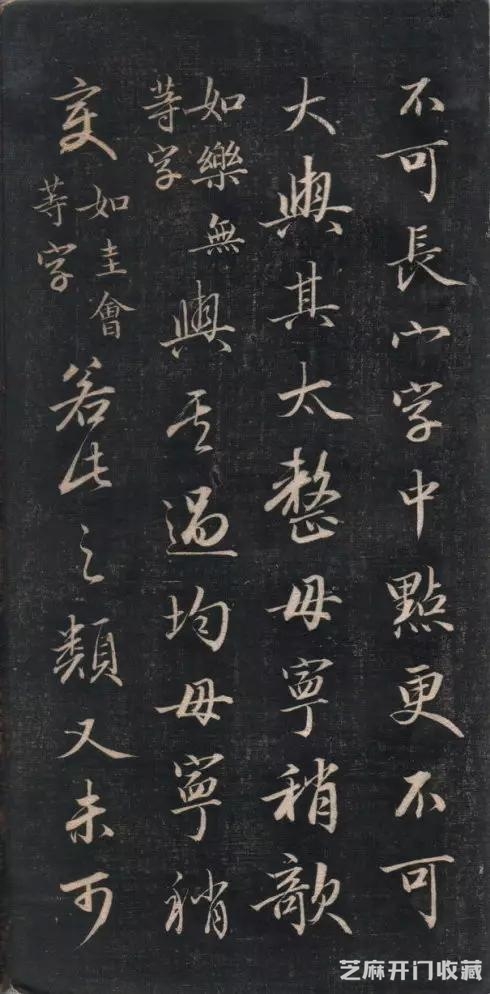 不可長宀字中點更不可
大與其太整毋寧稍欹
如樂無
等字
與其過均毋寧稍
変
如圭會
等字
若此之類又未可
芝麻开门收藏